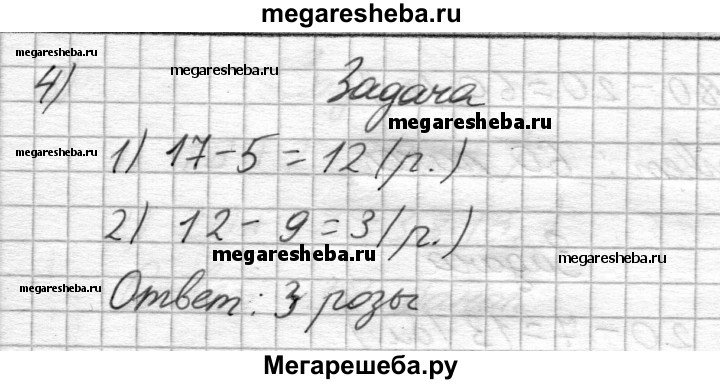 megaresheba.ru
megaresheba.ru
4) megaresheba.ru Задача
megaresheba.ru
megaresheba.ru 1) 17-5=12(р.)
2) 12-9=3(р.)
megaresheba.ru megaresheba.ru
megaresheba.ru Ответ: 3 розы megaresheba.ru
Мегарешеба.ру